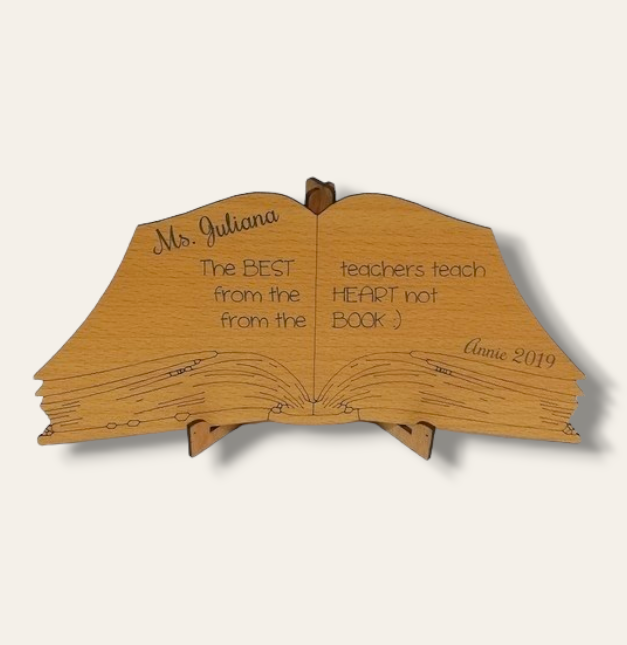 Ms. Juliana
The BEST teachers teach
from the HEART not
from the BOOK :)
Annie 2019